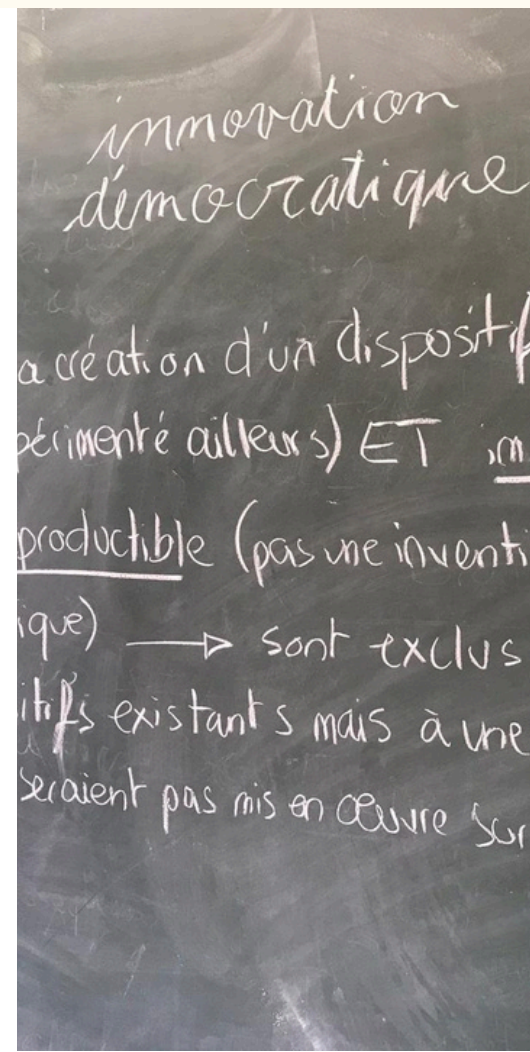 innovation
démocratique
a création d'un dispositif
périmenté ailleurs) ET in
productible (pas une inventi
ique) → sont exclus
itifs existants mais à une
seraient pas mis en œuvre sur